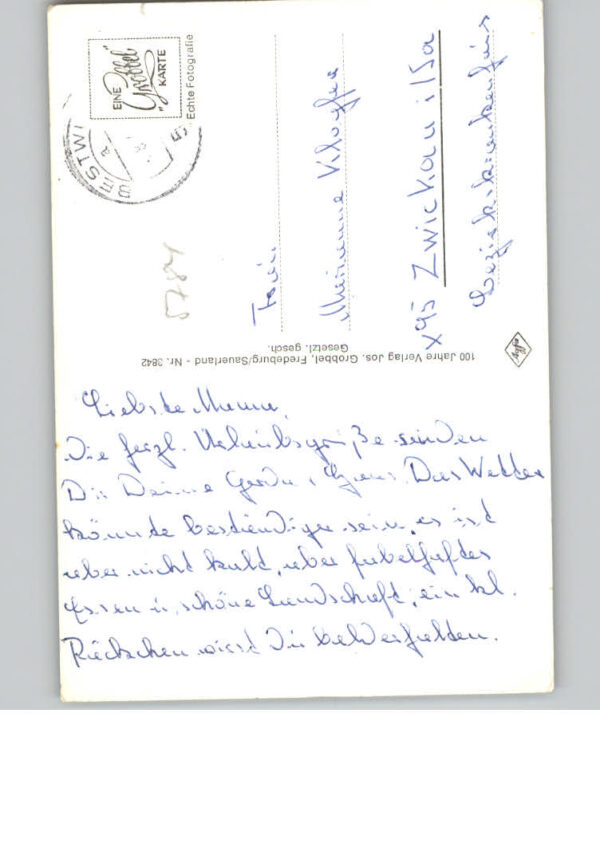 Liebste Mumm,
Die herzl. Urlaubsgrüße senden
Dir Deine Gerda u. Hans. Das Wetter
könnte beständiger sein, es ist
aber nicht kalt, aber fabelhaftes
Essen u. schöne Landschaft, ein kl.
Päckchen wirst Du bald erhalten.
100 Jahre Verlag Jos. Grobbel, Fredeburg/Sauerland - Nr. 3842
Gesetzl. gesch.
EINE
Grobbel
KARTE
Echte Fotografie
BESTWI
5784
Frau
Marianne
X95 Zwickau i/Sa
Bezirkskrankenhaus